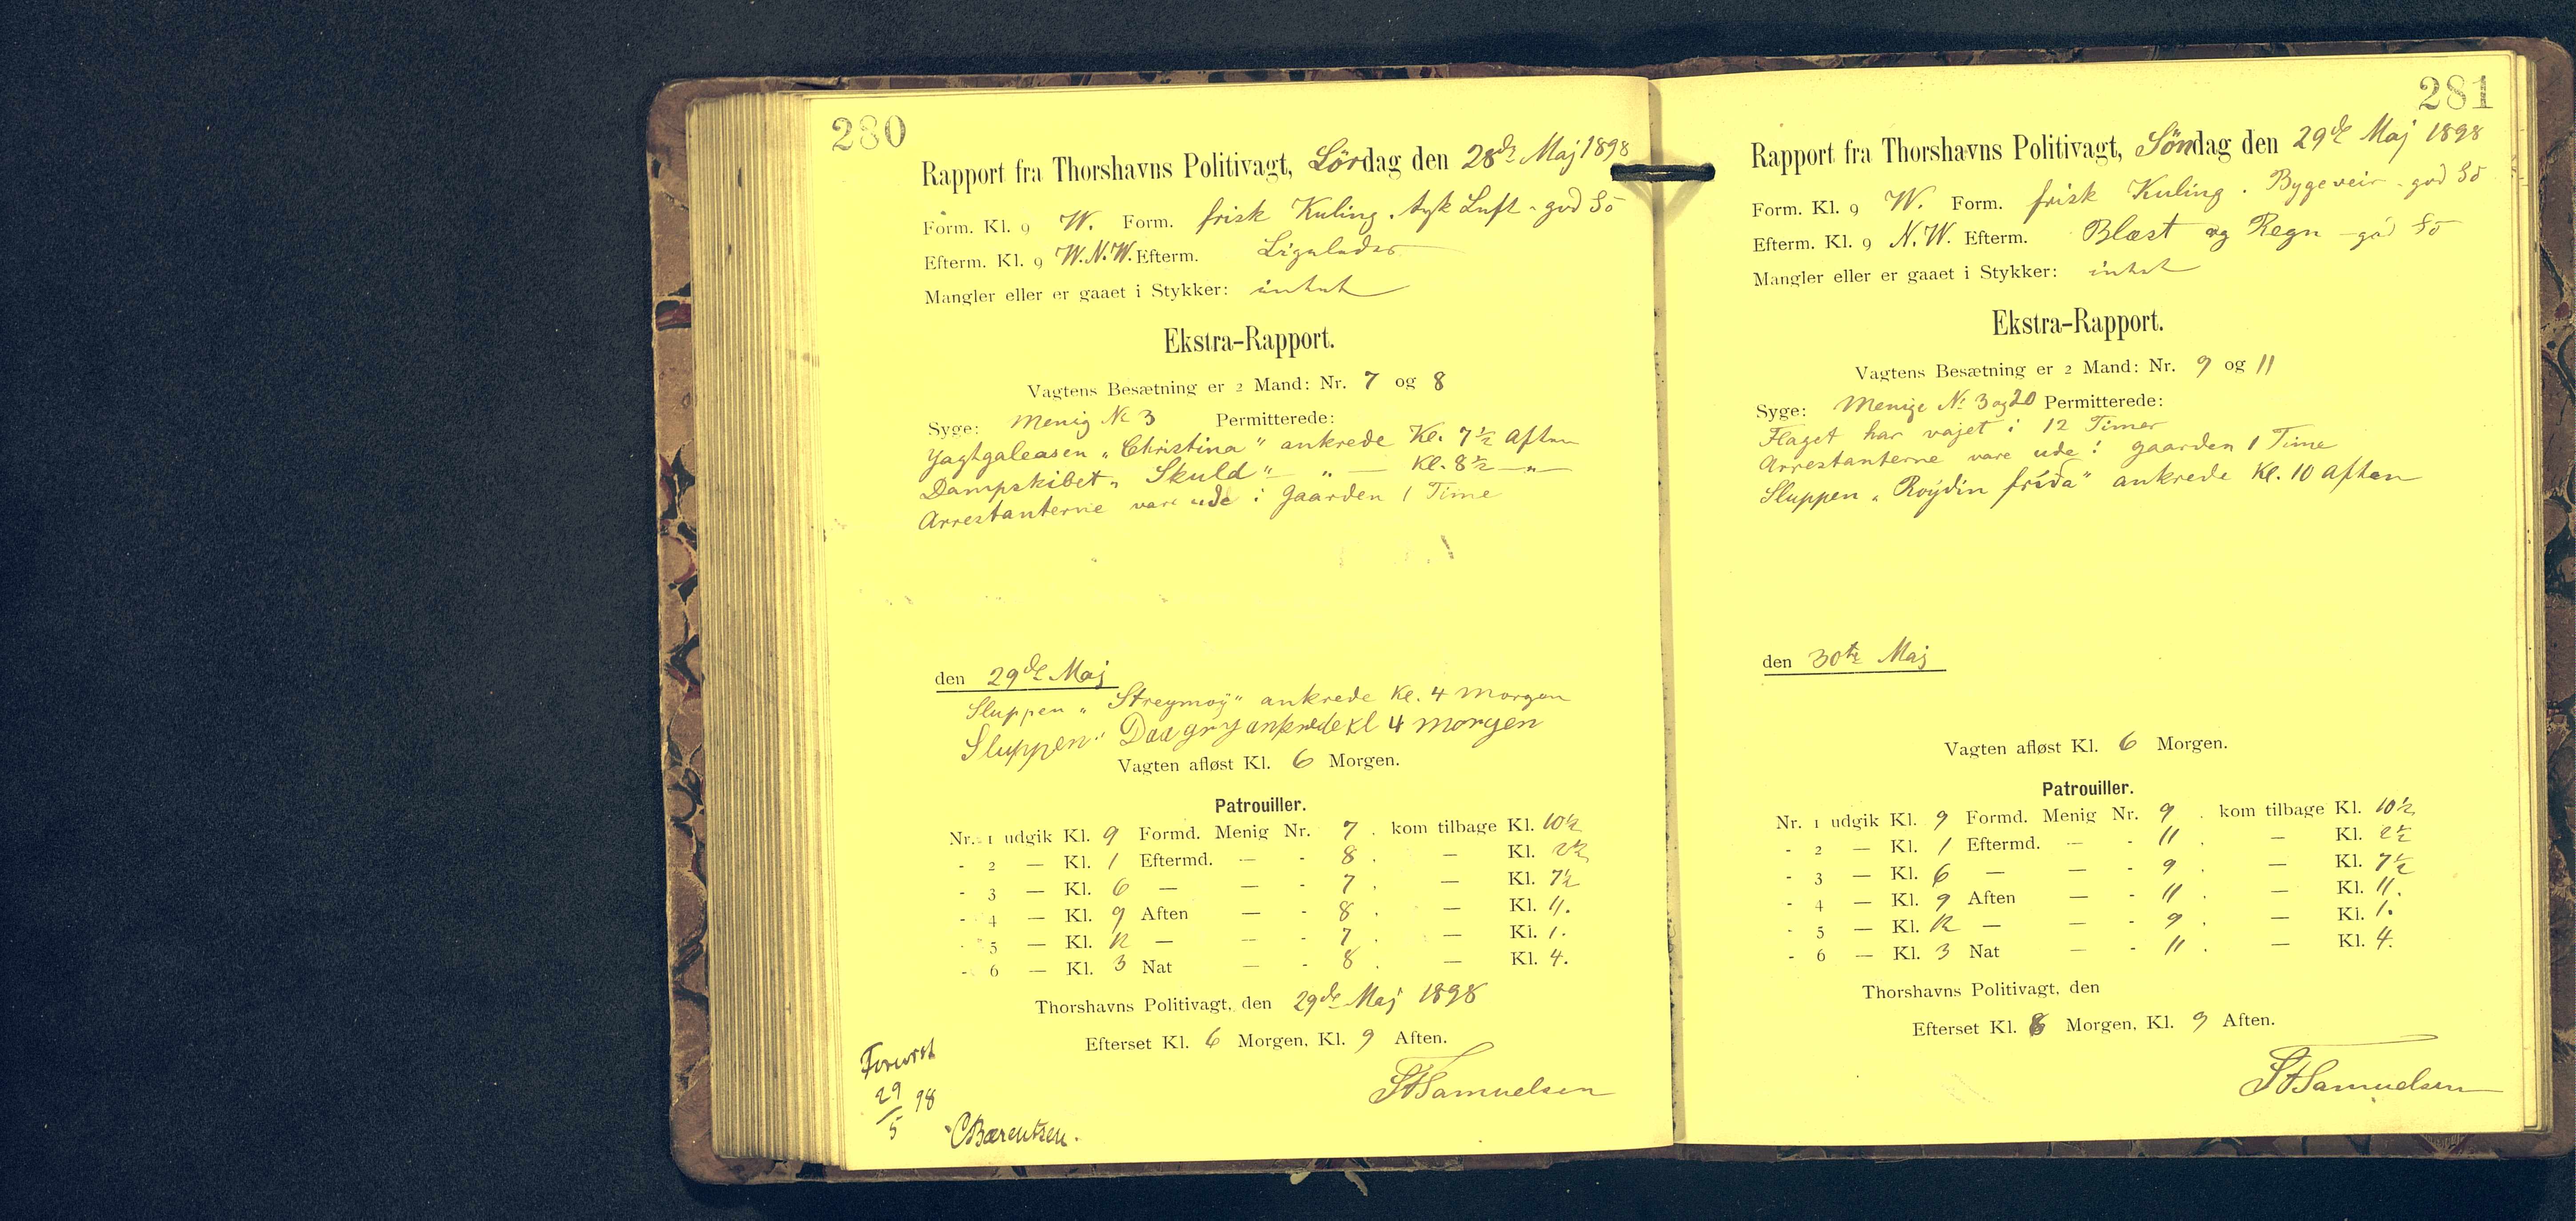 280
Rapport fra Thorshavns Politivagt, Lördag den 28de Maj 1898
Form. Kl. 9 W. Form. frisk Kuling. tyk Luft - god Sö
Efterm. Kl. 9 W.N.W. Efterm. Ligeledes
Mangler eller er gaaet i Stykker: intet
Ekstra-Rapport.
Vagtens Besætning er 2 Mand: Nr. 7 og 8
Syge: Menig No 3 Permitterede:
Jagtgaleasen „Christina" ankrede Kl. 7½ Aften
Dampskibet „Skuld" — „ — Kl. 8½ — „ —
Arrestanterne vare ude i Gaarden 1 Time
den 29de Maj
Sluppen „Streymoy" ankrede Kl. 4 Morgen
Sluppen „Daagry ankrede Kl 4 morgen
Vagten afløst Kl. 6 Morgen.
Patrouiller.
Nr. 1 udgik Kl. 9 Formd. Menig Nr. 7 . kom tilbage Kl. 10½
- 2 — Kl. 1 Eftermd. — - 8 . — Kl. 2½
- 3 — Kl. 6 — — - 7 . — Kl. 7½
- 4 — Kl. 9 Aften — - 8 . — Kl. 11.
- 5 — Kl. 12 — — - 7 . — Kl. 1.
- 6 — Kl. 3 Nat — - 8 . — Kl. 4.
Thorshavns Politivagt, den 29de Maj 1898
Efterset Kl. 6 Morgen, Kl. 9 Aften.
Samuelsen
Forevist
29/5 98
CBærentsen.
281
Rapport fra Thorshavns Politivagt, Söndag den 29de Maj 1898
Form. Kl. 9 W. Form. frisk Kuling. Bygeveir - god Sö
Efterm. Kl. 9 N.W. Efterm. Blæst og Regn - god Sö
Mangler eller er gaaet i Stykker: intet
Ekstra-Rapport.
Vagtens Besætning er 2 Mand: Nr. 9 og 11
Syge: Menige No 3 og 20 Permitterede:
Flaget har vajet i 12 Timer
Arrestanterne vare ude i gaarden 1 Time
Sluppen „Royðin fríða" ankrede Kl. 10 Aften
den 30te Maj
Vagten afløst Kl. 6 Morgen.
Patrouiller.
Nr. 1 udgik Kl. 9 Formd. Menig Nr. 9 . kom tilbage Kl. 10½
- 2 — Kl. 1 Eftermd. — - 11 . — Kl. 2½
- 3 — Kl. 6 — — - 9 . — Kl. 7½
- 4 — Kl. 9 Aften — - 11 . — Kl. 11.
- 5 — Kl. 12 — — - 9 . — Kl. 1.
- 6 — Kl. 3 Nat — - 11 . — Kl. 4.
Thorshavns Politivagt, den
Efterset Kl. 6 Morgen, Kl. 9 Aften.
Samuelsen